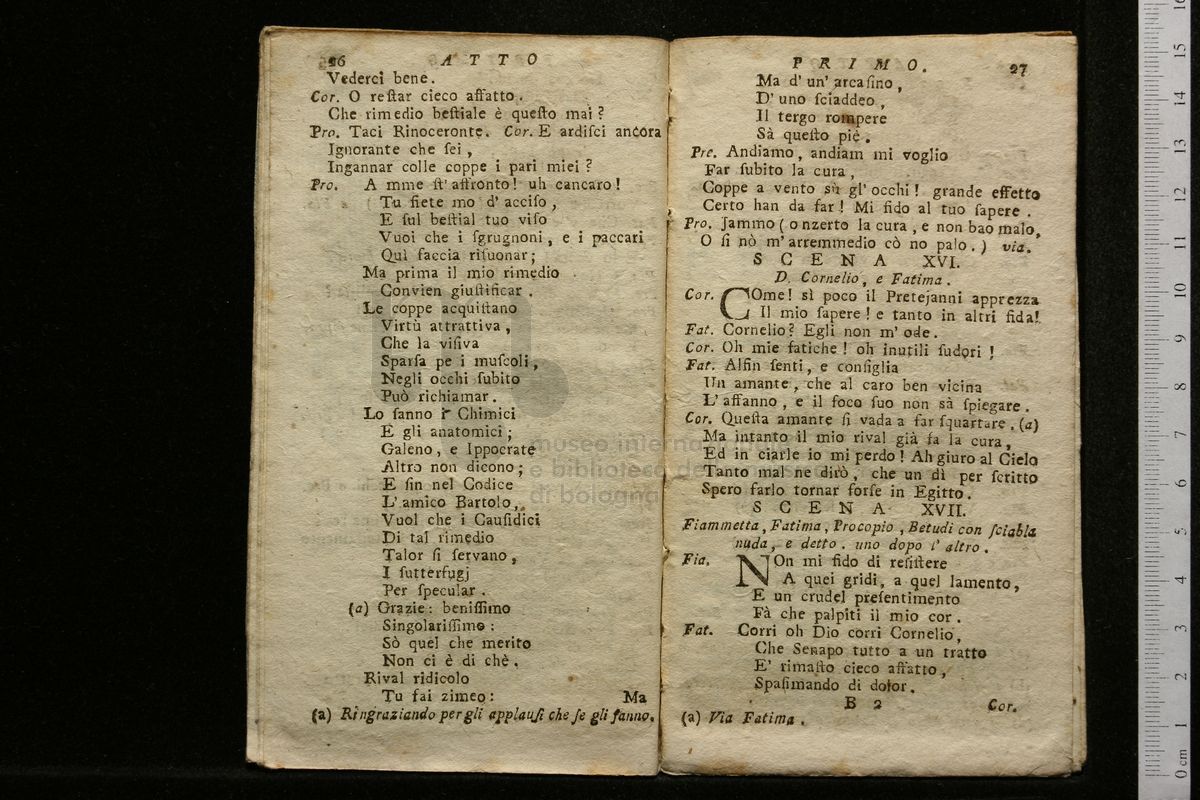 26 A T T O
Vederci bene.
Cor. O reſtar cieco affatto.
Che rimedio beſtiale è queſto mai?
Pro. Taci Rinoceronte. Cor. E ardiſci ancora
Ignorante che ſei,
Ingannar colle coppe i pari miei?
Pro. A mme ſt' affronto! uh cancaro!
Tu ſiete mo d' acciſo,
E ſul beſtial tuo viſo
Vuoi che i ſgrugnoni, e i paccari
Quì faccia riſuonar;
Ma prima il mio rimedio
Convien giuſtificar.
Le coppe acquiſtano
Virtù attrattiva,
Che la viſiva
Sparſa pe i muſcoli,
Negli occhi ſubito
Può richiamar.
Lo ſanno i Chimici
E gli anatomici;
Galeno, e Ippocrate
Altro non dicono;
E ſin nel Codice
L' amico Bartolo,
Vuol che i Cauſidici
Di tal rimedio
Talor ſi ſervano,
I ſutterfugj
Per ſpecular.
(a) Grazie: beniſſimo
Singolariſſimo:
Sò quel che merito
Non ci è di chè.
Rival ridicolo
Tu fai zimeo: Ma
(a) Ringraziando per gli applauſi che ſe gli fanno.
P R I M O. 27
Ma d' un' arcaſino,
D' uno ſciaddeo,
Il tergo rompere
Sà queſto piè.
Pre. Andiamo, andiam mi voglio
Far ſubito la cura,
Coppe a vento sù gl' occhi! grande effetto
Certo han da far! Mi fido al tuo ſapere.
Pro. Jammo (onzerto la cura, e non bao malo,
O ſi nò m' arremmedio cò no palo.) via.
S C E N A XVI.
D. Cornelio, e Fatima.
Cor. COme! sì poco il Pretejanni apprezza
Il mio ſapere! e tanto in altri fida!
Fat. Cornelio? Egli non m' ode.
Cor. Oh mie fatiche! oh inutili ſudori!
Fat. Alfin ſenti, e conſiglia
Un amante, che al caro ben vicina
L' affanno, e il foco ſuo non sà ſpiegare.
Cor. Queſta amante ſi vada a far ſquartare. (a)
Ma intanto il mio rival già fa la cura,
Ed in ciarle io mi perdo! Ah giuro al Cielo
Tanto mal ne dirò, che un dì per ſcritto
Spero farlo tornar forſe in Egitto.
S C E N A XVII.
Fiammetta, Fatima, Procopio, Betudi con ſciabla
nuda, e detto. uno dopo l' altro.
Fia. NOn mi fido di reſiſtere
A quei gridi, a quel lamento,
E un crudel preſentimento
Fà che palpiti il mio cor.
Fat. Corri oh Dio corri Cornelio,
Che Senapo tutto a un tratto
E' rimaſto cieco affatto,
Spaſimando di dolor.
B 2 Cor.
(a) Via Fatima.
museo internazionale
e biblioteca della musica
di bologna
0 cm 1 2 3 4 5 6 7 8 9 10 11 12 13 14 15 16